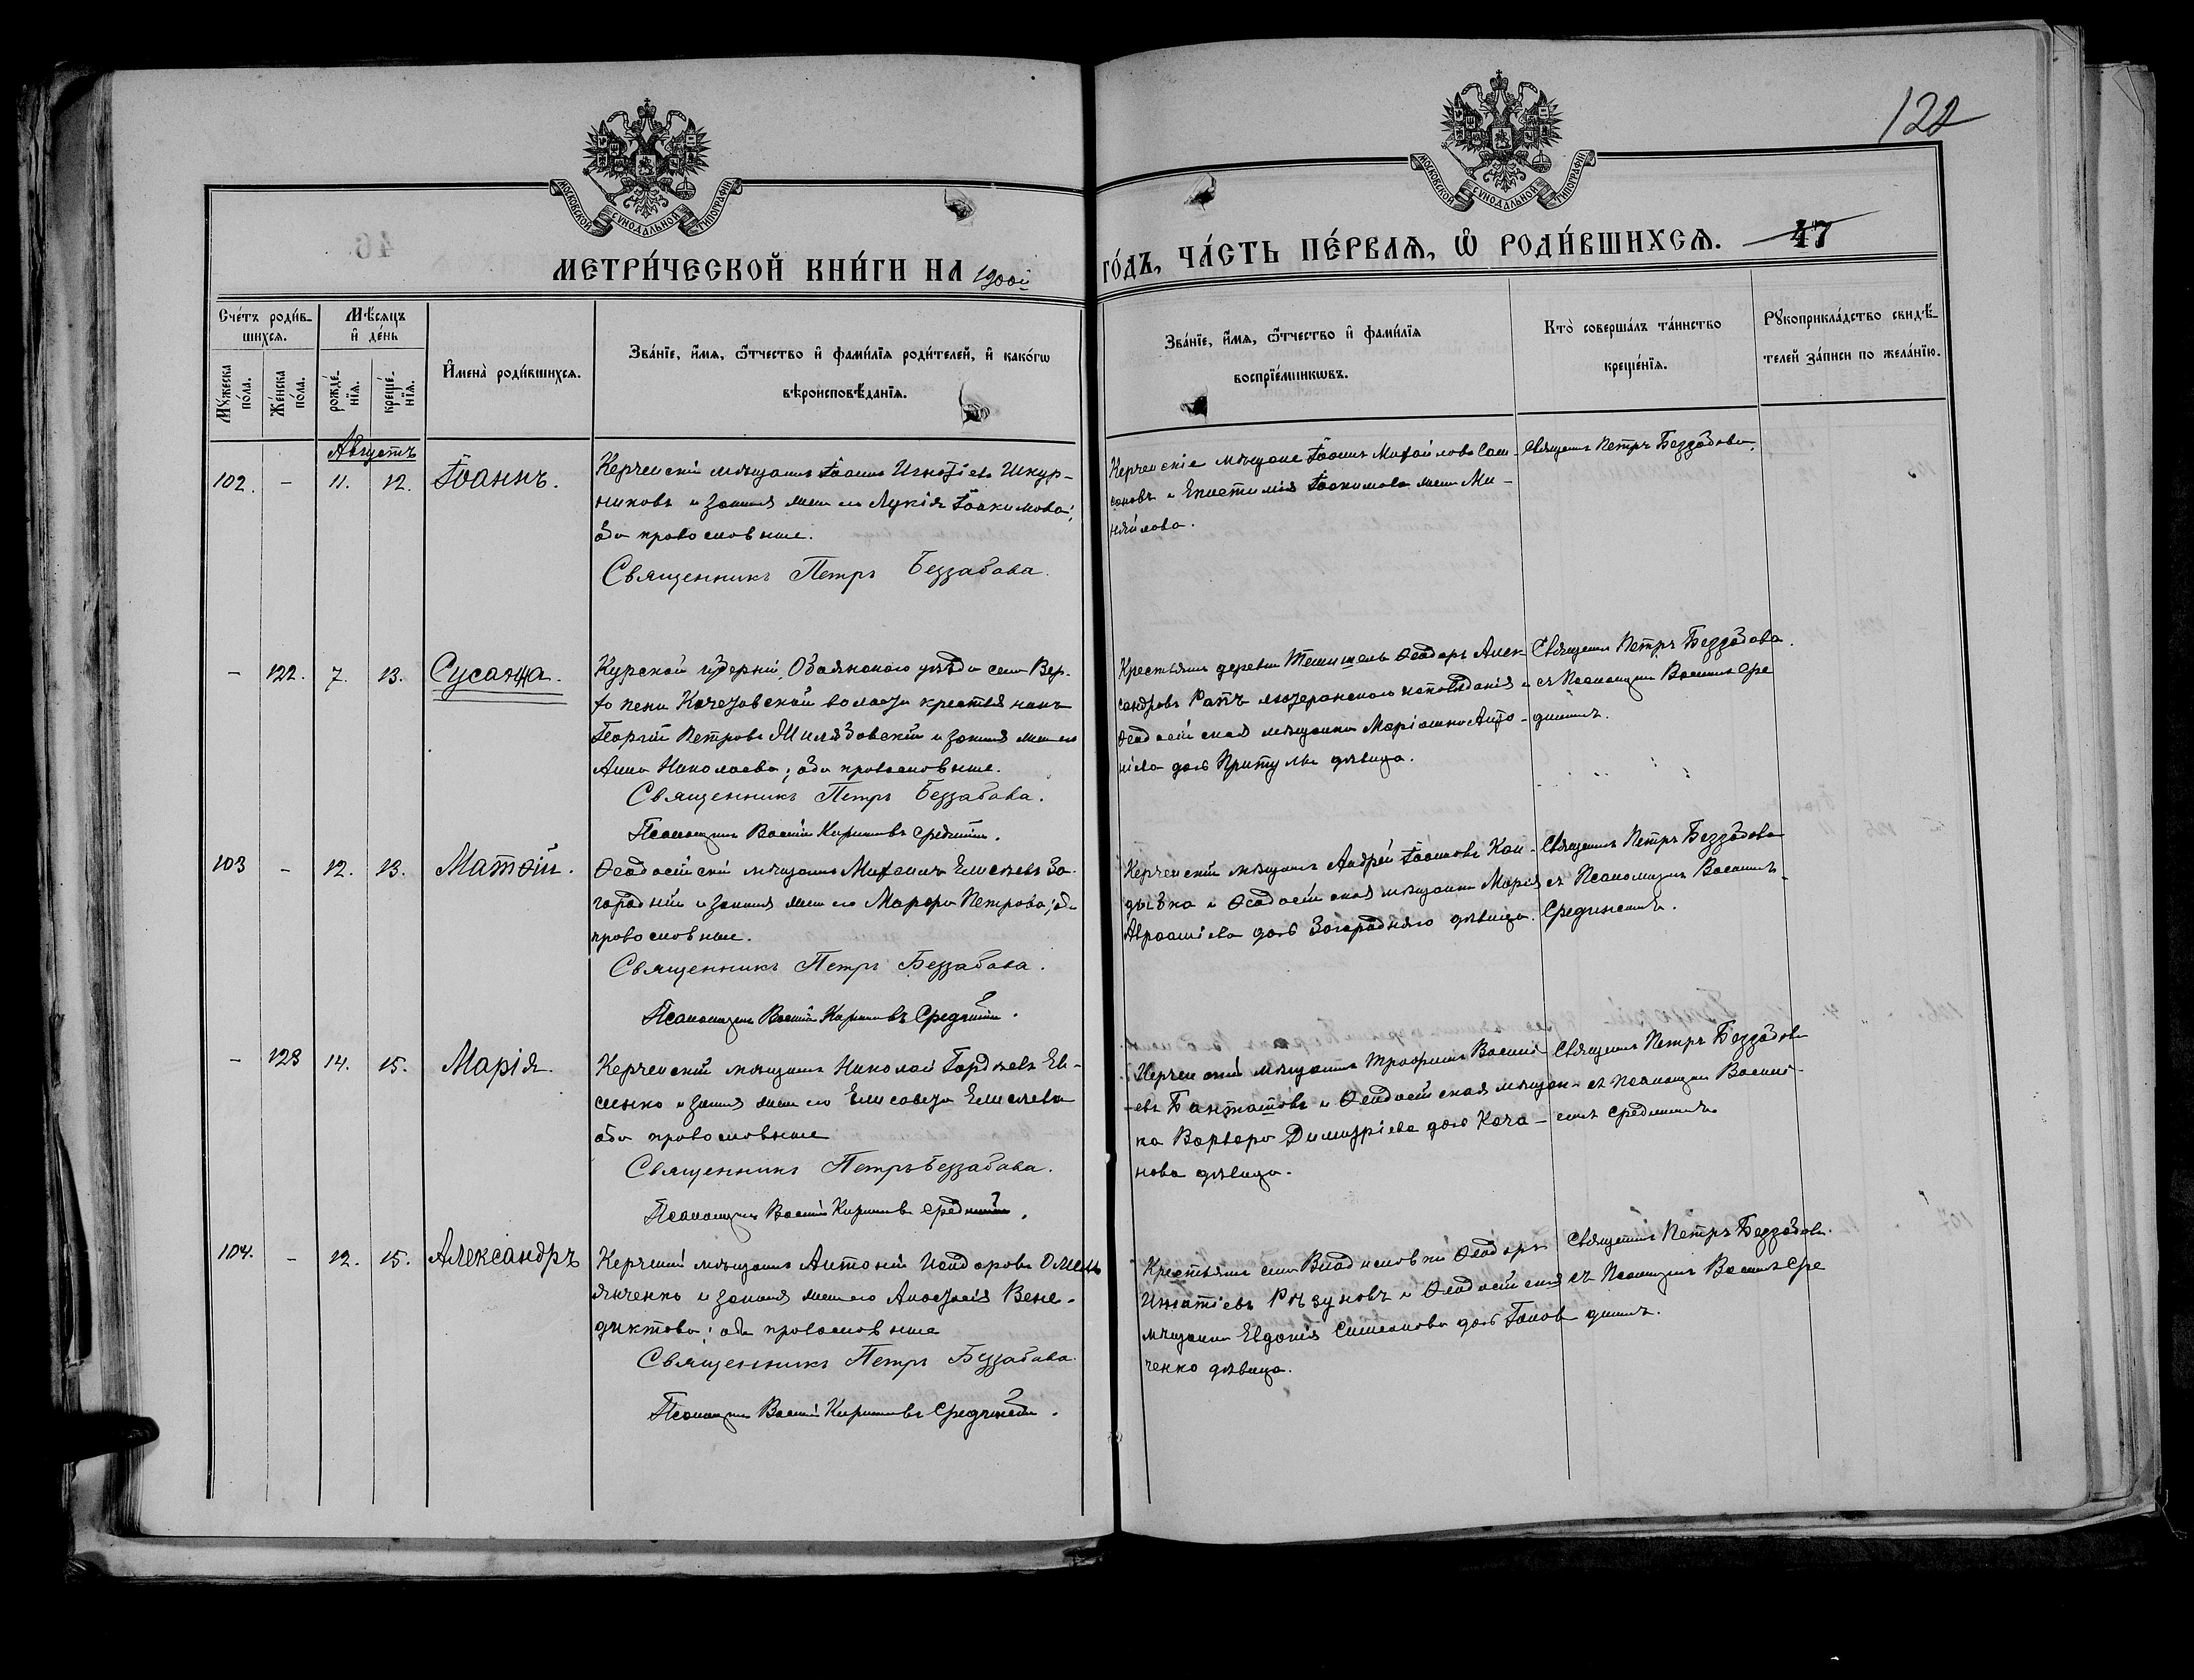 122
МОСКОВСКОЙ СУНОДАЛЬНОЙ ТИПОГРАФІИ
МОСКОВСКОЙ СУНОДАЛЬНОЙ ТИПОГРАФІИ
МЕТРИ́ЧЕСКОЙ КНИ́ГИ НА 1900й
ГО́ДЪ, ЧА́СТЬ ПЕ́РВАЯ, Ѡ҆ РОДИ́ВШИХСѦ. 47
Сче́тъ роди́в-
шихсѧ.
Мꙋ́жеска по́ла.
Же́нска по́ла.
Мѣ́сѧцъ и҆ де́нь
рожде́-нїѧ.
креще́-нїѧ.
И҆мена̀ роди́вшихсѧ.
Зва́нїе, и҆́мѧ, ѻ҆́тчество и҆ фами́лїѧ роди́телей, и҆ како́гѡ
вѣроисповѣ́данїѧ.
Зва́нїе, и҆́мѧ, ѻ҆́тчество и҆ фами́лїѧ
воспрїе́мникѡвъ.
Кто̀ соверша́лъ та́инство
креще́нїѧ.
Рꙋкоприкла́дство свидѣ́-
телей за́писи по жела́нїю.
Августъ
102. - 11. 12. Іоаннъ.
Керченскій мѣщанинъ Іоаннъ Игнатіевъ Шкур-
никовъ и законная жена его Лукія Іоакимова;
оба православные.
Священникъ Петръ Беззабава.
Керченскіе мѣщане Іоаннъ Михайловъ Сам-
соновъ и Епистимія Іоакимова жена Ми-
няйлова.
Священникъ Петръ Беззабава.
- 122. 7. 13. Сусанна.
Курской губерніи, Обаянскаго уѣзда села Вер-
хопенья Кочетовской волости крестьянинъ
Георгій Петровъ и законная жена его
Анна Николаева; оба православные.
Священникъ Петръ Беззабава.
Псаломщикъ Василій Кирилловъ Срединскій.
Крестьянинъ деревни Ѳеодоръ Алек-
сандровъ Ратъ лютеранскаго исповѣданія и
Ѳеодосійская мѣщанка Маріамна Анто-
ніева дочь Притулы дѣвица.
Священникъ Петръ Беззабава
съ Псаломщикомъ Василіемъ Сре
динскимъ.
103 - 12. 13. Матѳій.
Ѳеодосійскій мѣщанинъ Михаилъ Елисѣевъ За-
городній и законная жена его Марфа Петрова; оба
православные.
Священникъ Петръ Беззабава.
Псаломщикъ Василій Кирилловъ Срединскій.
Керченскій мѣщанинъ Андрей Іоанновъ Кан-
дыбка и Ѳеодосійская мѣщанка Марія
Авраамiева дочь Загородняго дѣвица.
Священникъ Петръ Беззабава
съ Псаломщикомъ Василіемъ
Срединскимъ.
- 123 14. 15. Марія.
Керченскій мѣщанинъ Николай Гордѣевъ Ев-
сѣнко и законная жена его Елисавета Елисѣева
оба православные
Священникъ Петръ Беззабава.
Псаломщикъ Василій Кирилловъ Срединскій.
Керченскій мѣщанинъ Трофимъ Василі-
евъ и Ѳеодосійская мѣщан-
ка Варвара Димитріева дочь Кача-
нова дѣвица.
Священникъ Петръ Беззабава
съ псаломщикомъ Василі-
емъ Срединскимъ.
104. - 12. 15. Александръ
Керченскій мѣщанинъ Антоній Исидоровъ Омель
янченко и законная жена его Анастасія Вене-
диктова; оба православные
Священникъ Петръ Беззабава.
Псаломщикъ Василій Кирилловъ Срединскій.
Крестьянинъ села Владиславовки Ѳеодоръ
Игнатіевъ Рѣзуновъ и Ѳеодосійская
мѣщанка Евдокія Симеонова дочь
ченко дѣвица.
Священникъ Петръ Беззабава.
съ Псаломщикомъ Василіемъ Сре
динскимъ.